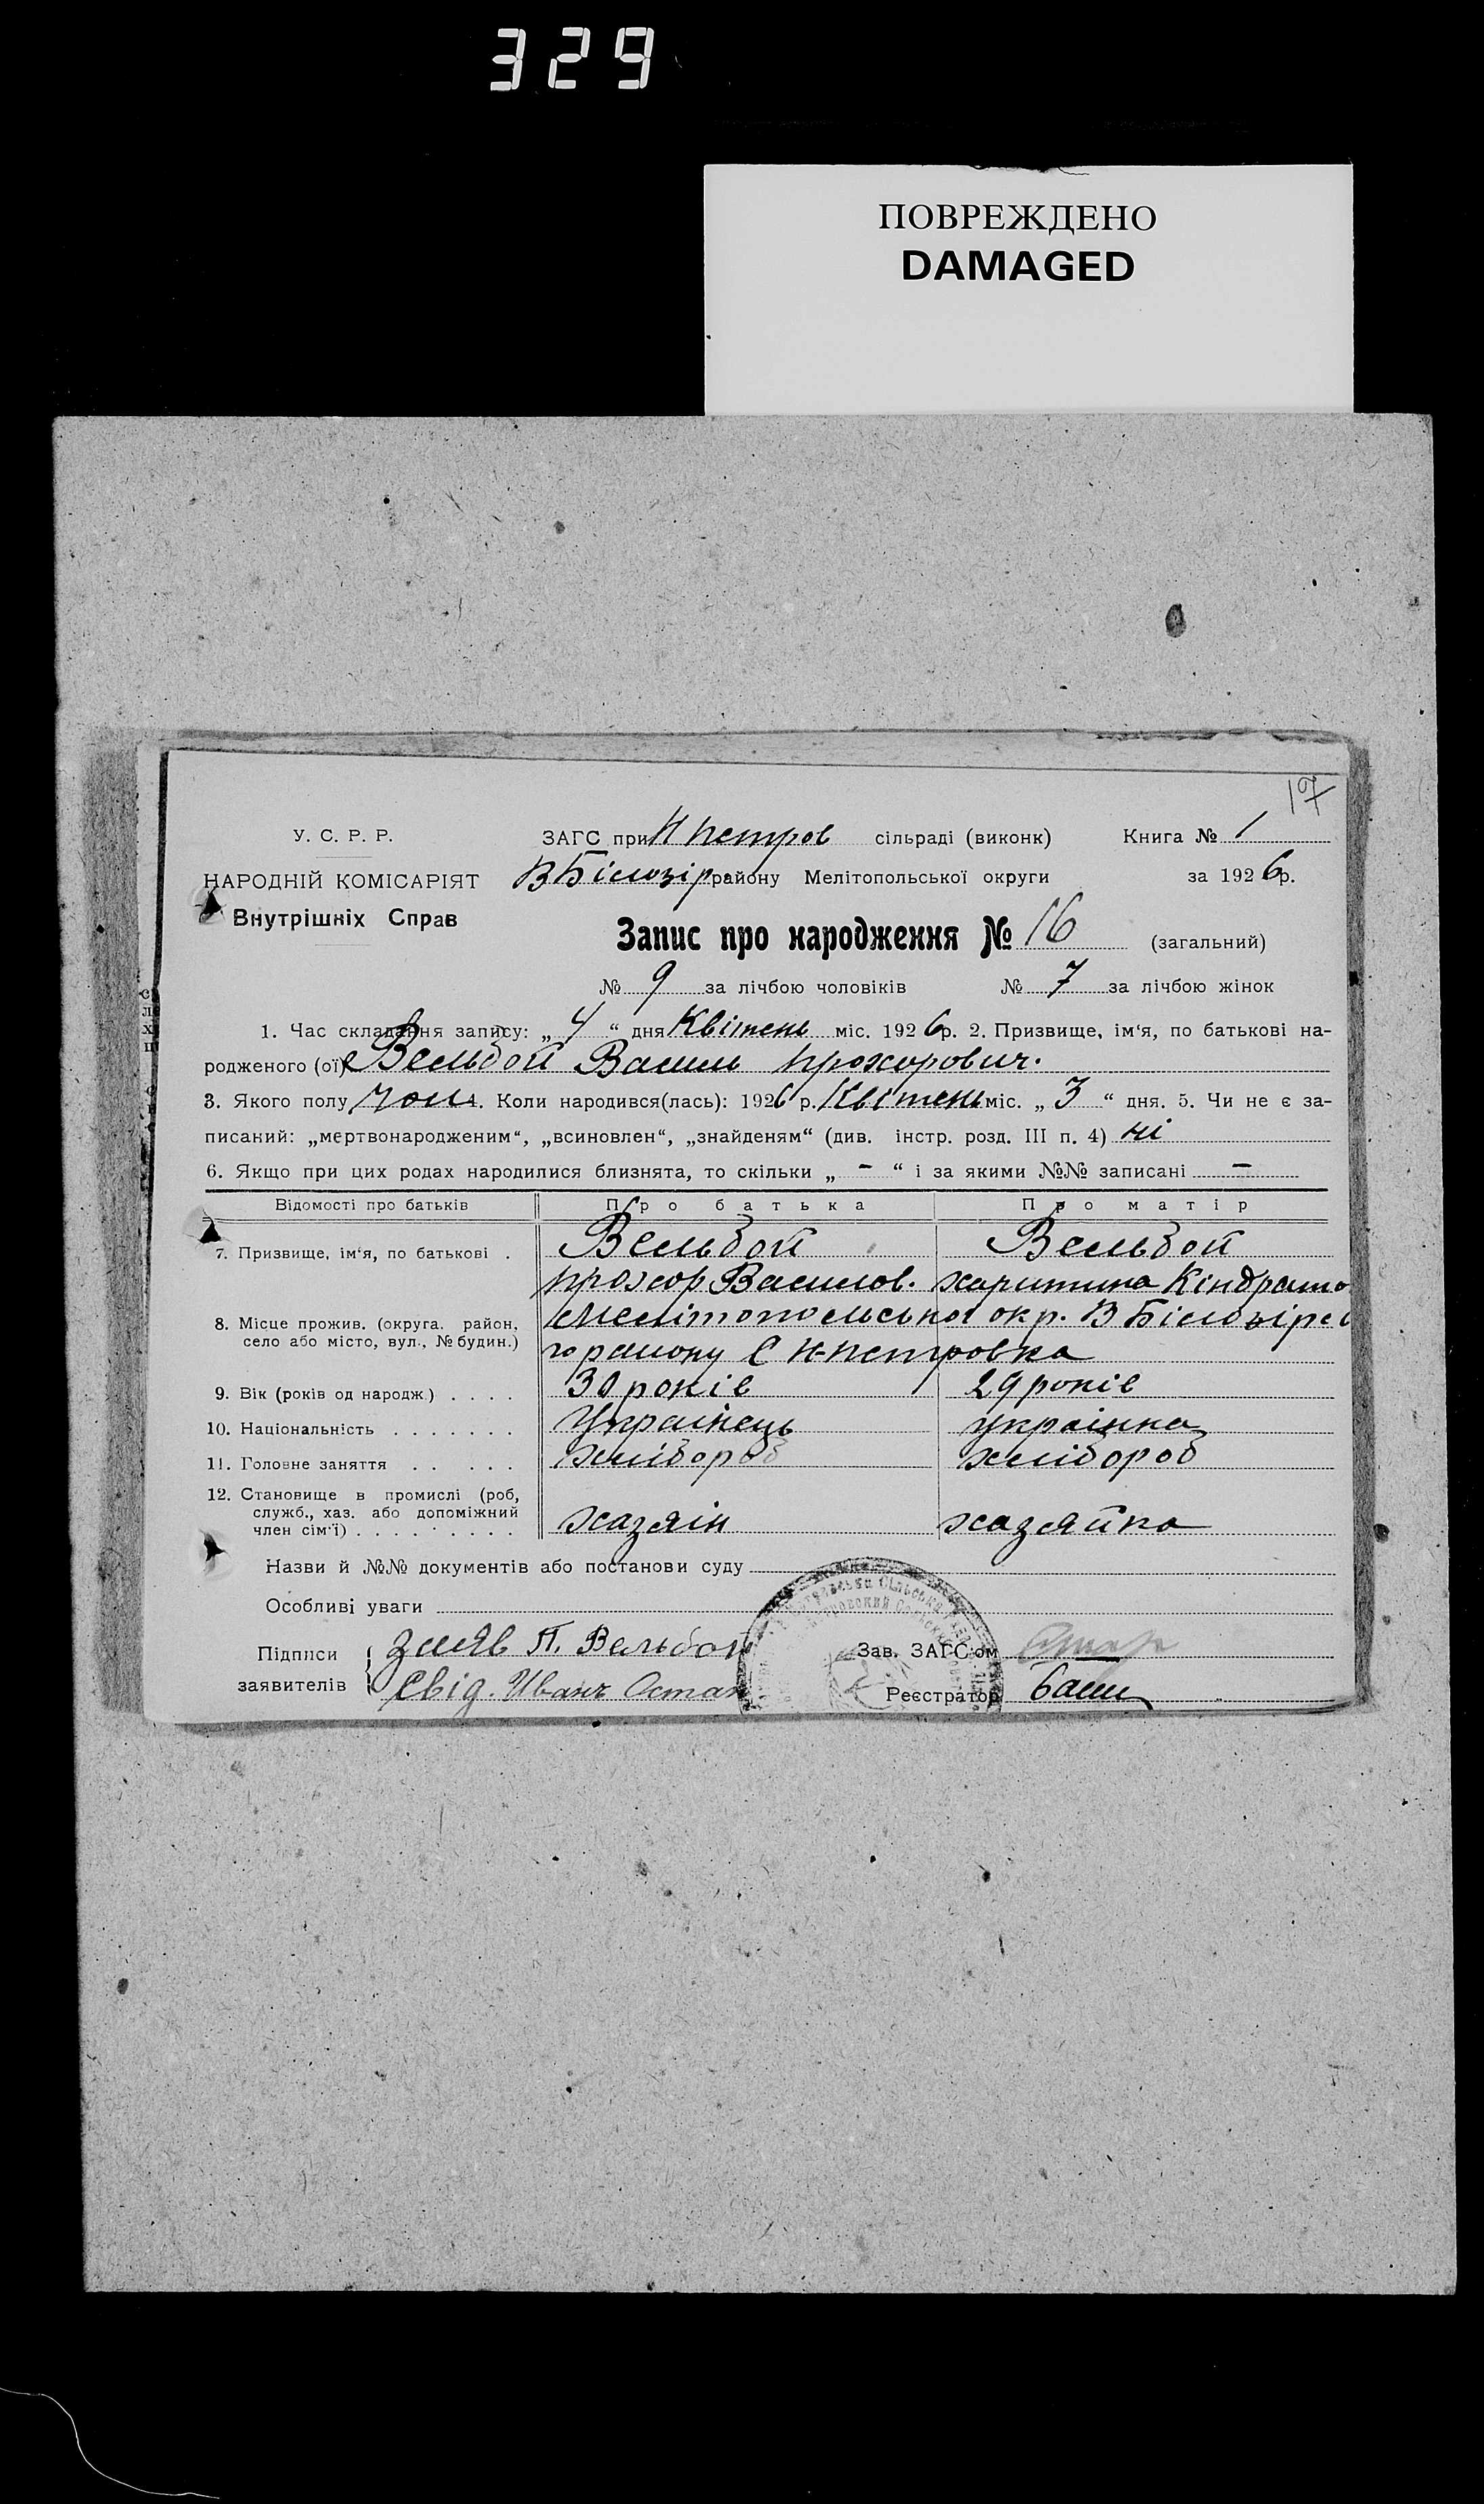 329
ПОВРЕЖДЕНО
DAMAGED
17
У. С. Р. Р. ЗАГС при Н петров сільраді (виконк) Книга № 1
НАРОДНІЙ КОМІСАРІЯТ В Білозір району Мелітопольської округи за 1926 р.
Внутрішніх Справ
Запис про народження № 16 (загальний)
№ 9 за лічбою чоловіків № 7 за лічбою жінок
1. Час складання запису: „ 4 “ дня Квітень міс. 1926 р. 2. Призвище, ім'я, по батькові на-
родженого (ої) Вельбой Василь прохорович.
3. Якого полу чол 4. Коли народився(лась): 1926 р. Квітень міс. „ 3 “ дня. 5. Чи не є за-
писаний: „мертвонародженим“, „всиновлен“, „знайденям“ (див. інстр. розд. III п. 4) ні
6. Якщо при цих родах народилися близнята, то скільки „ - “ і за якими №№ записані -
Відомості про батьків Про батька Про матір
7. Призвище, ім'я, по батькові . Вельбой Вельбой
прохор Василов. харитина Кіндрато
8. Місце прожив. (округа, район, Мелітопольської окр. В Білозірсь
село або місто, вул., № будин.)
го району С Н-петровка
9. Вік (років од народж.) . . . . 30 років 29 років
10. Національність . . . . . . . Українець українка
11. Головне заняття . . . . . . хлібороб хлібороб
12. Становище в промислі (роб,
служб., хаз. або допоміжний
член сім'ї) . . . . . . . . . хазяін хазяйка
Назви й №№ документів або постанови суду
Особливі уваги
Підписи заяв П. Вельбой Зав. ЗАГС'ом
заявителів Свід. Иванъ Остап Реєстратор Баш